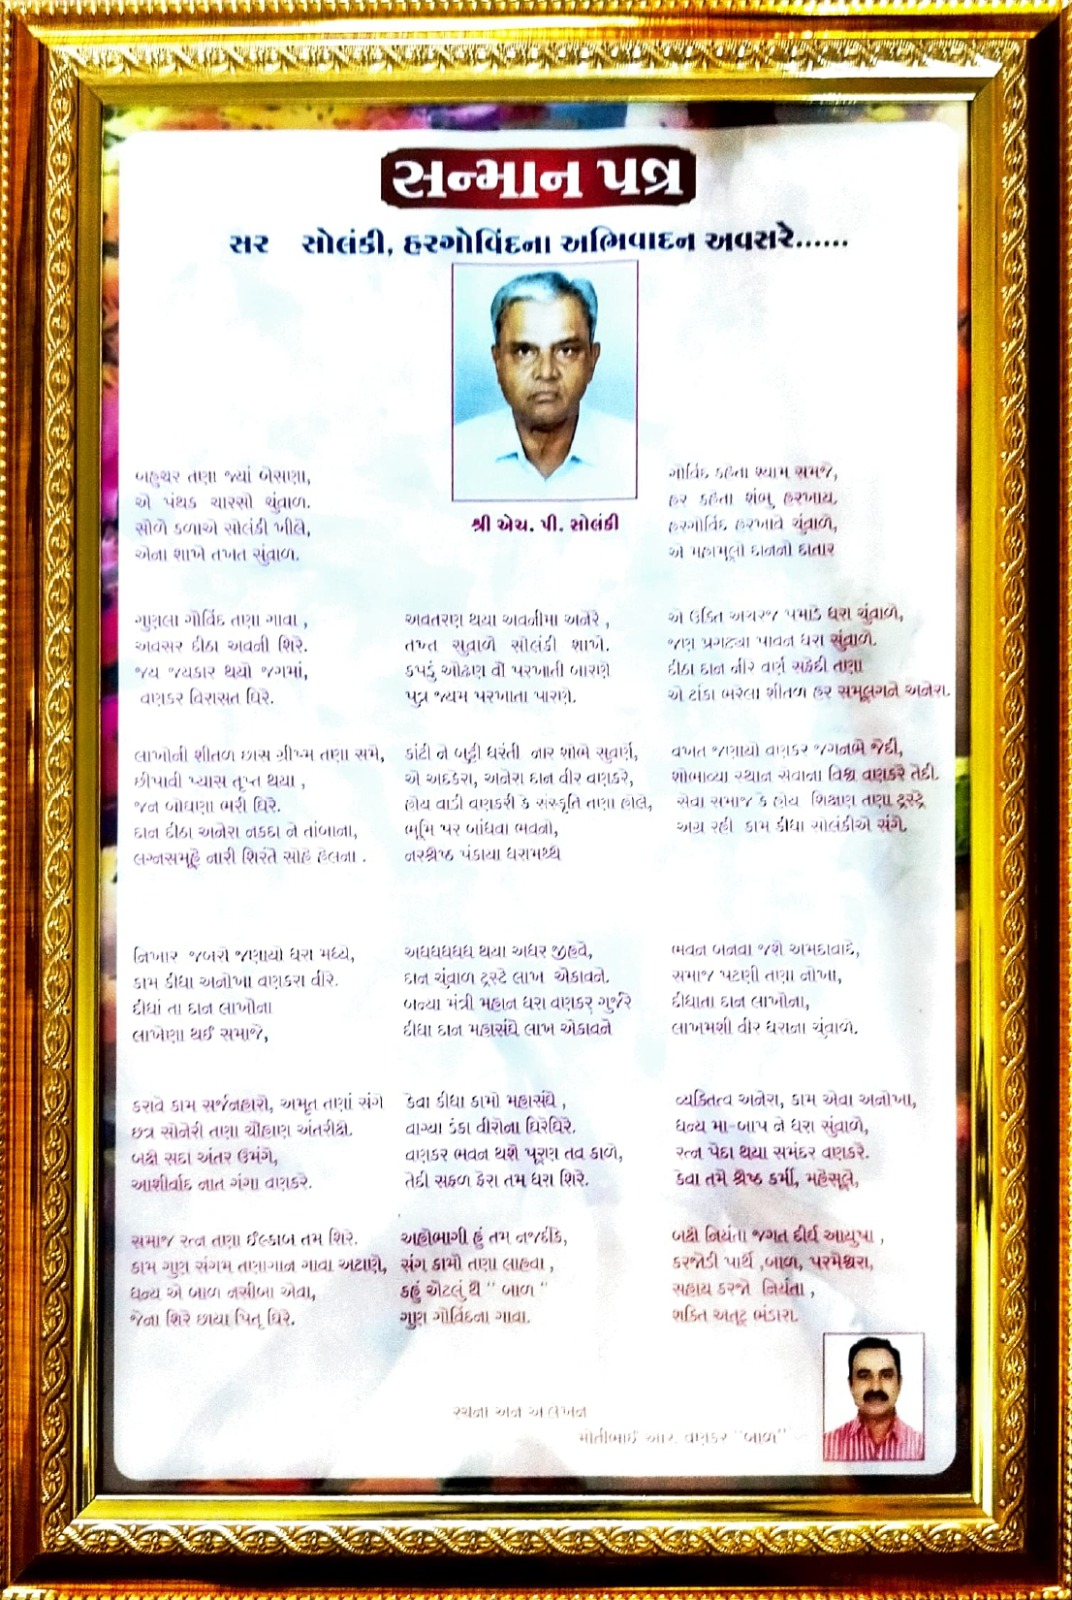 સન્માન પત્ર
સર સોલંકી, હરગોવિંદના અભિવાદન અવસરે......
શ્રી એચ. પી. સોલંકી
બહુચર તણા જ્યાં બેસણા,
એ પંથક ચારસો ચુંવાળ.
સોળે કળાએ સોલંકી ખીલે,
એના શાખે તખત સુંવાળ.
ગોવિંદ કહેતા શ્યામ સમજે,
હર કહેતા શંભુ હરખાય.
હરગોવિંદ હરખાવે ચુંવાળે,
એ મહામૂલો દાનનો દાતાર
ગુણલા ગોવિંદ તણા ગાવા ,
અવસર દીઠા અવની શિરે.
જય જયકાર થયો જગમાં,
વણકર વિરાસત ઘિરે.
અવતરણ થયા અવનીમા અનેરે ,
તખ્ત સુવાળે સોલંકી શાખે.
કપડું ઓઢણ વૌ પરખાતી બારણે
પુત્ર જ્યમ પરખાતા પારણે.
એ ઉક્તિ અચરજ પમાડે ધરા ચુંવાળે,
જાણ પ્રગટ્યા પાવન ધરા સુંવાળે.
દીઠા દાન નીર વર્ણ સફેદી તણા
એ ટાંકા ભરેલા શીતળ હર સમૂલગને અનેરા.
લાખોની શીતળ છાસ ગ્રીષ્મ તણા સમે,
છીપાવી પ્યાસ તૃપ્ત થયા ,
જન બોઘણા ભરી ઘિરે.
દાન દીઠા અનેરા નકદા ને તાંબાના,
લગ્નસમૂહે નારી શિરતે સોહે હેલના .
કાંટી ને બુટ્ટી ધરંતી નાર શોભે સુવર્ણ,
એ અદકેરા, અનેરા દાન વીર વણકરે,
હોય વાડી વણકરી કે સંસ્કૃતિ તણા હોલે,
ભૂમિ પર બાંધવા ભવનો,
નરશ્રેષ્ઠ પંકાયા ધરામધ્યે
વખત જણાયો વાણકર જગનભે જેદી,
શોભાવ્યા સ્થાન સેવાના વિશ્વ વાણકરે તેદી.
સેવા સમાજ કે હોય શિક્ષણ તણા ટ્રસ્ટે
અગ્ર રહી કામ કીધા સોલંકીએ સંગે.
નિખાર જબરો જણાયો ધરા મધ્યે,
કામ કીધા અનોખા વાણકરા વીરે.
દીધાં તા દાન લાખોના
લાખેણા થઈ સમાજે,
અધધધધધ થયા અધર જીહવે,
દાન ચુંવાળ ટ્રસ્ટે લાખ એકાવને.
બન્યા મંત્રી મહાન ધરા વાણકર ગુર્જરે
દીધા દાન મહાસંઘે લાખ એકાવને
ભવન બનવા જશે અમદાવાદે,
સમાજ પટણી તણા નોખા,
દીધાતા દાન લાખોના,
લાખમશી વીર ધરાના ચુંવાળે.
કરાવે કામ સર્જનહારો, અમૃત તણાં સંગે
છત્ર સોનેરી તણા ચૌહાણ અંતરીક્ષે.
બક્ષે સદા અંતર ઉમંગે,
આશીર્વાદ નાત ગંગા વાણકરે.
કેવા કીધા કામો મહાસંઘે ,
વાગ્યા ડંકા વીરોના ઘિરેઘિરે.
વાણકર ભવન થશે પૂરણ તવ કાળે,
તેદી સફળ ફેરા તમ ધરા શિરે.
વ્યકિતત્વ અનેરા, કામ એવા અનોખા,
ધન્ય મા-બાપ ને ધરા સુંવાળે,
રત્ન પેદા થયા સમંદર વાણકરે.
કેવા તમે શ્રેષ્ઠ કર્મી, મહેસૂલે,
સમાજ રત્ન તણા ઈલ્કાબ તમ શિરે.
કામ ગુણ સંગમ તણાગાન ગાવા અટાણે,
ધન્ય એ બાળ નસીબા એવા,
જેના શિરે છાયા પિતૃ ઘિરે.
અહોભાગી હું તમ નજદીકે,
સંગ કામો તણા લાહવા ,
કહું એટલું થૈ " બાળ "
ગુણ ગોવિંદના ગાવા.
બક્ષે નિયંતા જગત દીર્ઘ આયુષા ,
કરજોડી પાર્થે ,બાળ, પરમેશ્વરા,
સહાય કરજો નિયંતા ,
શક્તિ અતૂટ ભંડારા.
રચના અને આલેખન
મોતીભાઈ આર. વાણકર "બાળ"